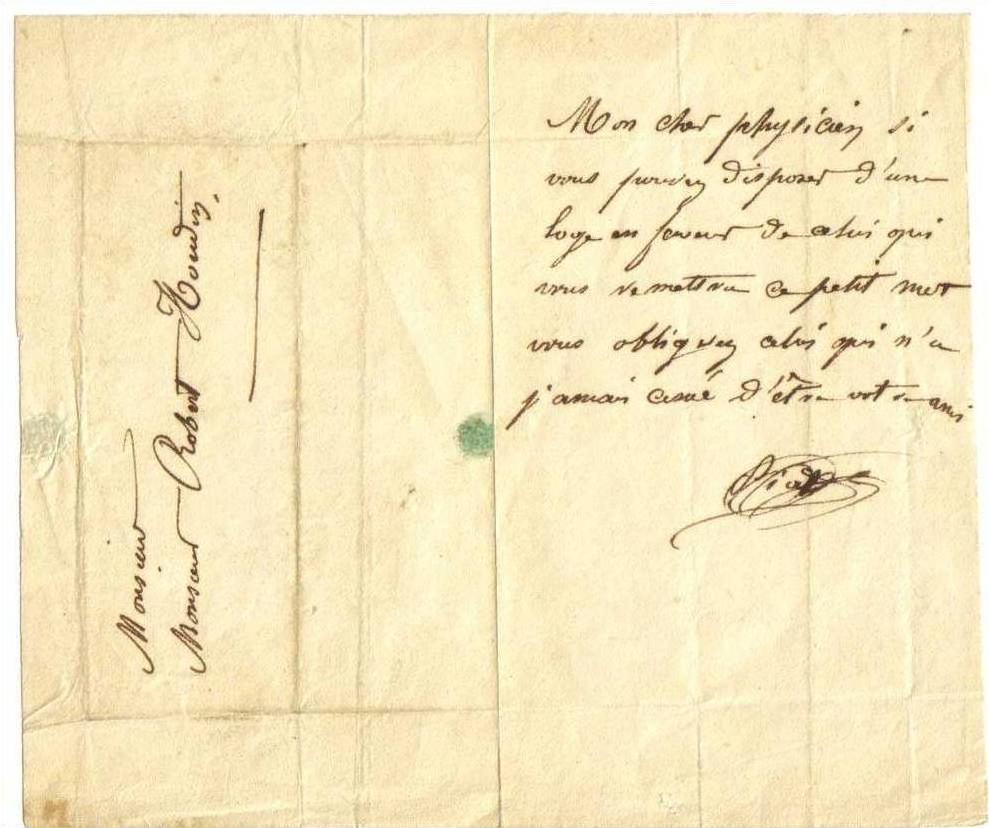 Monsieur
Monsieur Robert Houdin,
Mon cher physicien si
vous pouvez disposer d'une
loge en faveur de celui qui
vous remettra ce petit mot
vous obligerez celui qui n'a
jamais cessé d'être votre ami